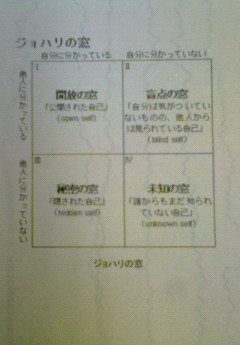 ジョハリの窓
自分に分かっている
自分に分かっていない
他人に分かっている
I
開放の窓
「公開された自己」
(open self)
II
盲点の窓
「自分は気がついてい
ないものの、他人から
は見られている自己」
(blind self)
他人に分かっていない
III
秘密の窓
「隠された自己」
(hidden self)
IV
未知の窓
「誰からもまだ知られ
ていない自己」
(unknown self)
ジョハリの窓